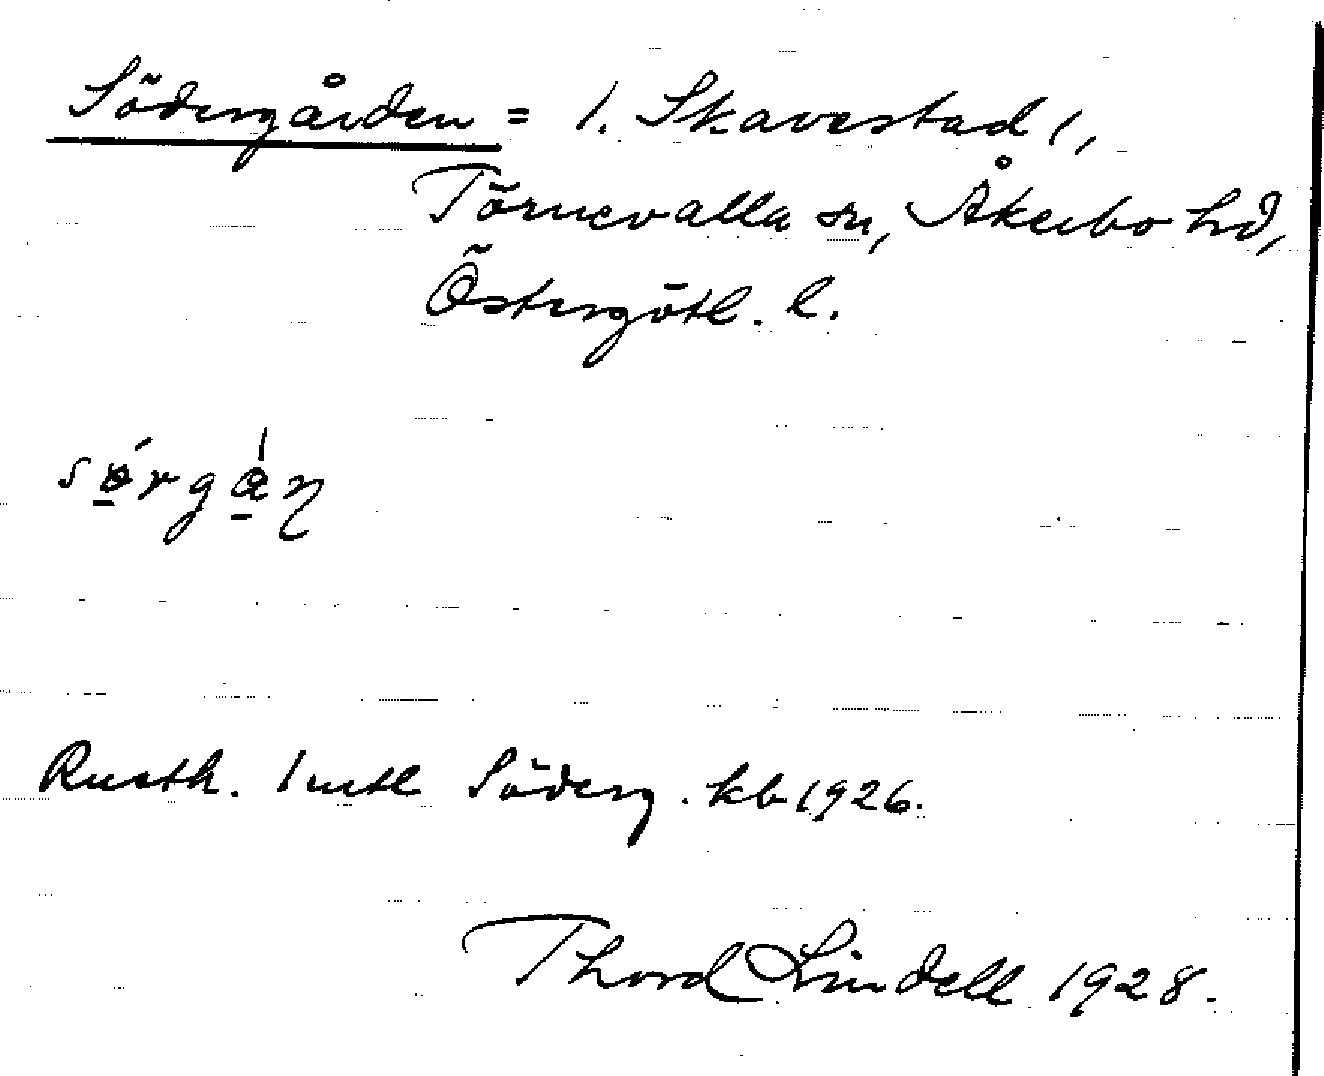 Södergården = 1. Skavestad 1,
Törnevalla sn, Åkerbo hd,
Östergötl. l.
sö̱́rgǻ̱n
Rusth. 1 mtl Söderg. kb 1926.
Thord Lindell 1928.